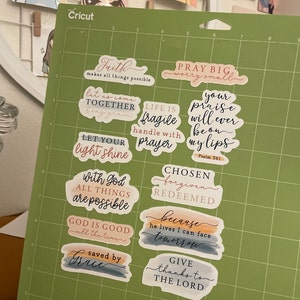 Cricut
Faith
makes all things possible
PRAY BIG
worry small
let us come
TOGETHER
LIFE IS
fragile
handle with
prayer
your
praise
will ever
be on
my lips
Psalm 34:1
LET YOUR
light shine
With God
ALL THINGS
are possible
CHOSEN
forgiven
REDEEMED
GOD IS GOOD
all the time
because
he lives I can face
tomorrow
saved by
Grace
GIVE
thanks to
THE LORD